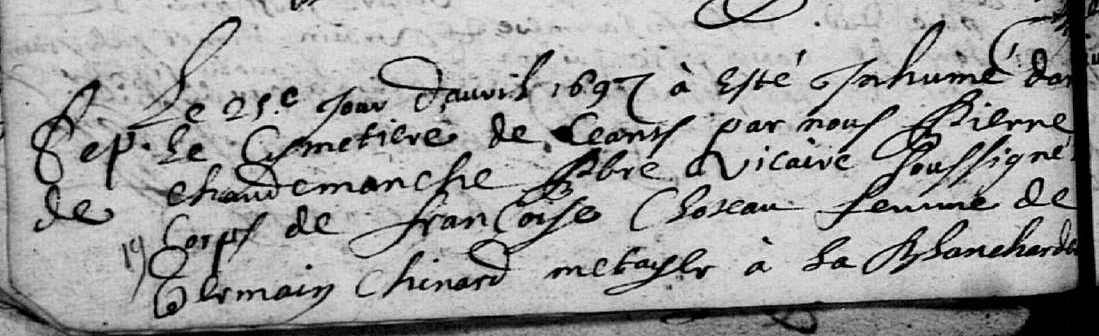 Le 25.e jour d'auvril 1697 à Esté Inhumé dans
Sep. le Cymetiere de Ceans par nous Pierre
de chaudemanche pbre Vicaire soussigné
19 Corps de françoise Choseau femme de
Germain Chinard metayer à la Blanchard